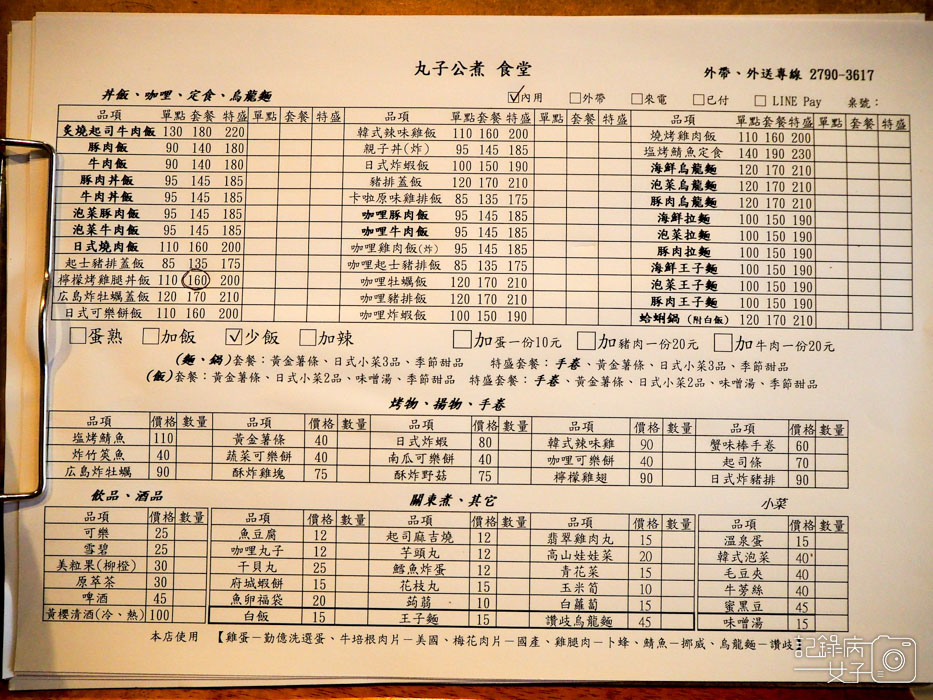 丸子公煮 食堂
外帶、外送專線 2790-3617
丼飯、咖哩、定食、烏龍麵
☑內用 □外帶 □來電 □已付 □ LINE Pay 桌號：
品項 單點 套餐 特盛 單點 套餐 特盛 品項 單點 套餐 特盛 單點 套餐 特盛 品項 單點 套餐 特盛 單點 套餐 特盛
炙燒起司牛肉飯 130 180 220 韓式辣味雞飯 110 160 200 燒烤雞肉飯 110 160 200
豚肉飯 90 140 180 親子丼(炸) 95 145 185 塩烤鯖魚定食 140 190 230
牛肉飯 90 140 180 日式炸蝦飯 100 150 190 海鮮烏龍麵 120 170 210
豚肉丼飯 95 145 185 豬排蓋飯 120 170 210 泡菜烏龍麵 120 170 210
牛肉丼飯 95 145 185 卡啦原味雞排飯 85 135 175 豚肉烏龍麵 120 170 210
泡菜豚肉飯 95 145 185 咖哩豚肉飯 95 145 185 海鮮拉麵 100 150 190
泡菜牛肉飯 95 145 185 咖哩牛肉飯 95 145 185 泡菜拉麵 100 150 190
日式燒肉飯 110 160 200 咖哩雞肉飯(炸) 95 145 185 豚肉拉麵 100 150 190
起士豬排蓋飯 85 135 175 咖哩起士豬排飯 85 135 175 海鮮王子麵 100 150 190
檸檬烤雞腿丼飯 110 160 200 咖哩牡蠣飯 120 170 210 泡菜王子麵 100 150 190
広島炸牡蠣蓋飯 120 170 210 咖哩豬排飯 120 170 210 豚肉王子麵 100 150 190
日式可樂餅飯 110 160 200 咖哩炸蝦飯 100 150 190 蛤蜊鍋 (附白飯) 120 170 210
□蛋熟 □加飯 ☑少飯 □加辣 □加蛋一份10元 □加豬肉一份20元 □加牛肉一份20元
(麵、鍋)套餐：黃金薯條、日式小菜3品、季節甜品 特盛套餐：手卷、黃金薯條、日式小菜3品、季節甜品
(飯)套餐：黃金薯條、日式小菜2品、味噌湯、季節甜品 特盛套餐：手卷、黃金薯條、日式小菜2品、味噌湯、季節甜品
烤物、揚物、手卷
品項 價格 數量 品項 價格 數量 品項 價格 數量 品項 價格 數量 品項 價格 數量
塩烤鯖魚 110 黃金薯條 40 日式炸蝦 80 韓式辣味雞 90 蟹味棒手卷 60
炸竹筴魚 40 蔬菜可樂餅 40 南瓜可樂餅 40 咖哩可樂餅 40 起司條 70
広島炸牡蠣 90 酥炸雞塊 75 酥炸野菇 75 檸檬雞翅 90 日式炸豬排 90
飲品、酒品 關東煮、其它 小菜
品項 價格 數量 品項 價格 數量 品項 價格 數量 品項 價格 數量 品項 價格 數量
可樂 25 魚豆腐 12 起司麻吉燒 12 翡翠雞肉丸 15 溫泉蛋 15
雪碧 25 咖哩丸子 12 芋頭丸 12 高山娃娃菜 20 韓式泡菜 40
美粒果(柳橙) 30 干貝丸 25 鱈魚炸蛋 12 青花菜 15 毛豆夾 40
原萃茶 30 府城蝦餅 15 花枝丸 15 玉米筍 10 牛蒡絲 40
啤酒 45 魚卵福袋 20 蒟蒻 10 白蘿蔔 15 蜜黑豆 45
黃櫻清酒(冷、熱) 100 白飯 15 王子麵 15 讚岐烏龍麵 45 味噌湯 15
本店使用 【雞蛋－勤億洗選蛋、牛培根肉片－美國、梅花肉片－國產、雞腿肉－卜蜂、鯖魚－挪威、烏龍麵－讚岐】
記錄病女子